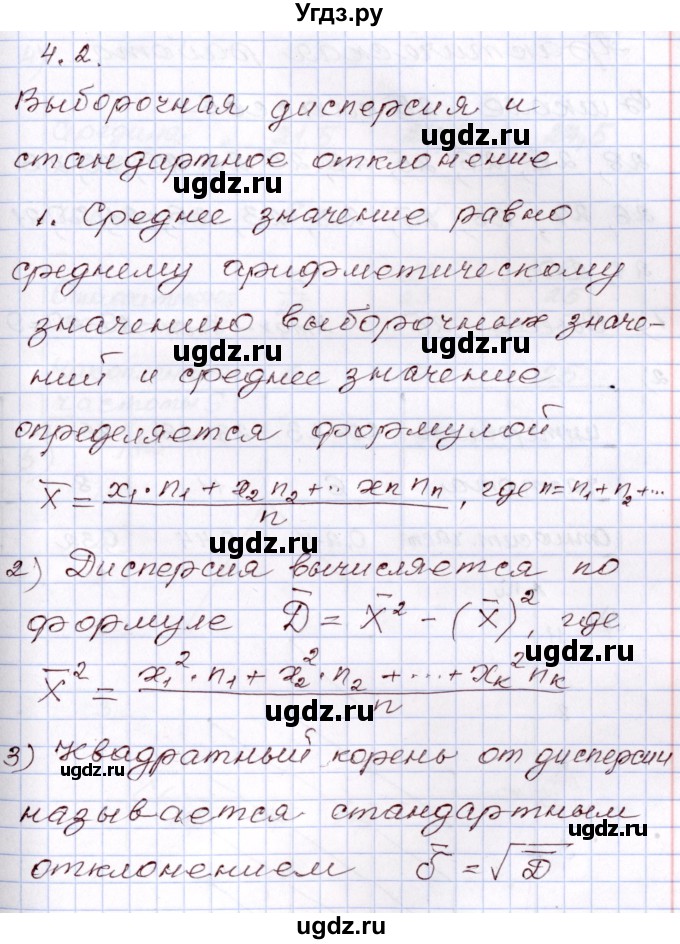 Угдз.ру
4.2.
Выборочная дисперсия и
ugdz.ru
стандартное отклонение
ugdz.ru ugdz.ru
1. Среднее значение равно
среднему арифметическому
значению выборочных значе-
ugdz.ru ugdz.ru
ний и среднее значение
определяется формулой
ugdz.ru
X̄ = (x₁·n₁ + x₂n₂ + ·· xₙnₙ)/n, где n = n₁ + n₂ + ...
ugdz.ru ugdz.ru
2) Дисперсия вычисляется по
формуле D̄ = X̄² - (X̄)², где
ugdz.ru ugdz.ru
X̄² = (x₁²·n₁ + x₂²·n₂ + ... + xₖ²nₖ)/n
ugdz.ru
3) Квадратный корень от дисперсии
ugdz.ru ugdz.ru
называется стандартным
ugdz.ru
отклонением σ̄ = √D̄
ugdz.ru ugdz.ru
ugdz.ru